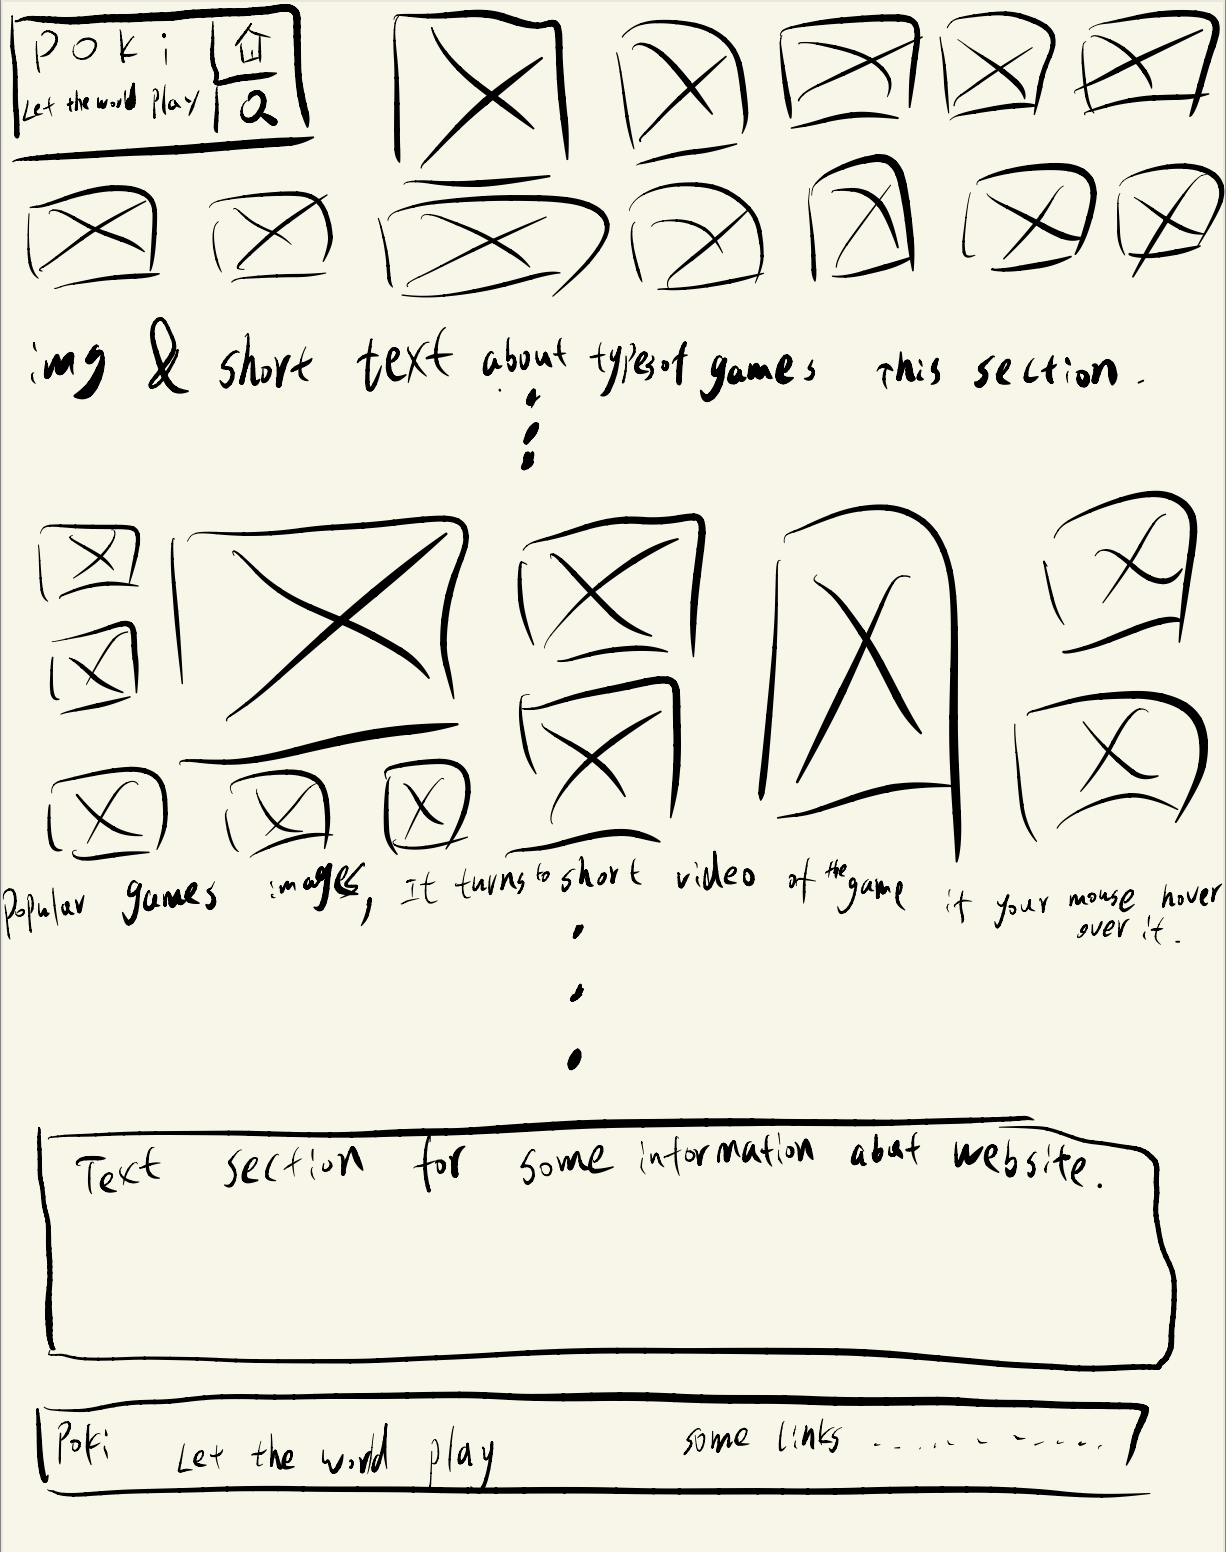 Poki
Let the world Play
img & short text about types of games This section.
Popular games images, It turns to short video of the game if your mouse hover
over it.
Text section for some information about website.
Poki Let the world play some links